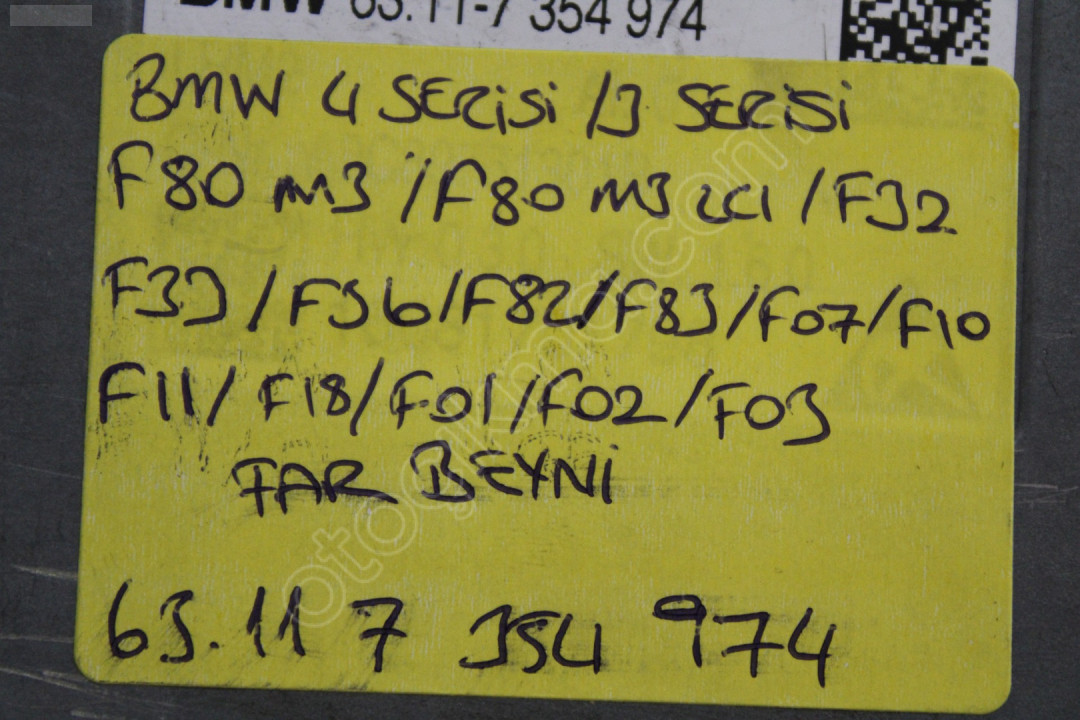 BMW 63.11-7 354 974
BMW 4 SERİSİ / 3 SERİSİ
F80 M3 / F80 M3 LCI / F32
F33 / F36 / F82 / F83 / F07 / F10
F11 / F18 / F01 / F02 / F03
FAR BEYNİ
63.11 7 354 974
otocikma.com